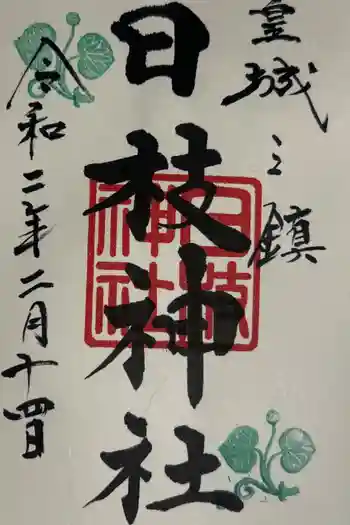 皇城之鎮
日枝神社
令和二年二月十四日
日枝神社